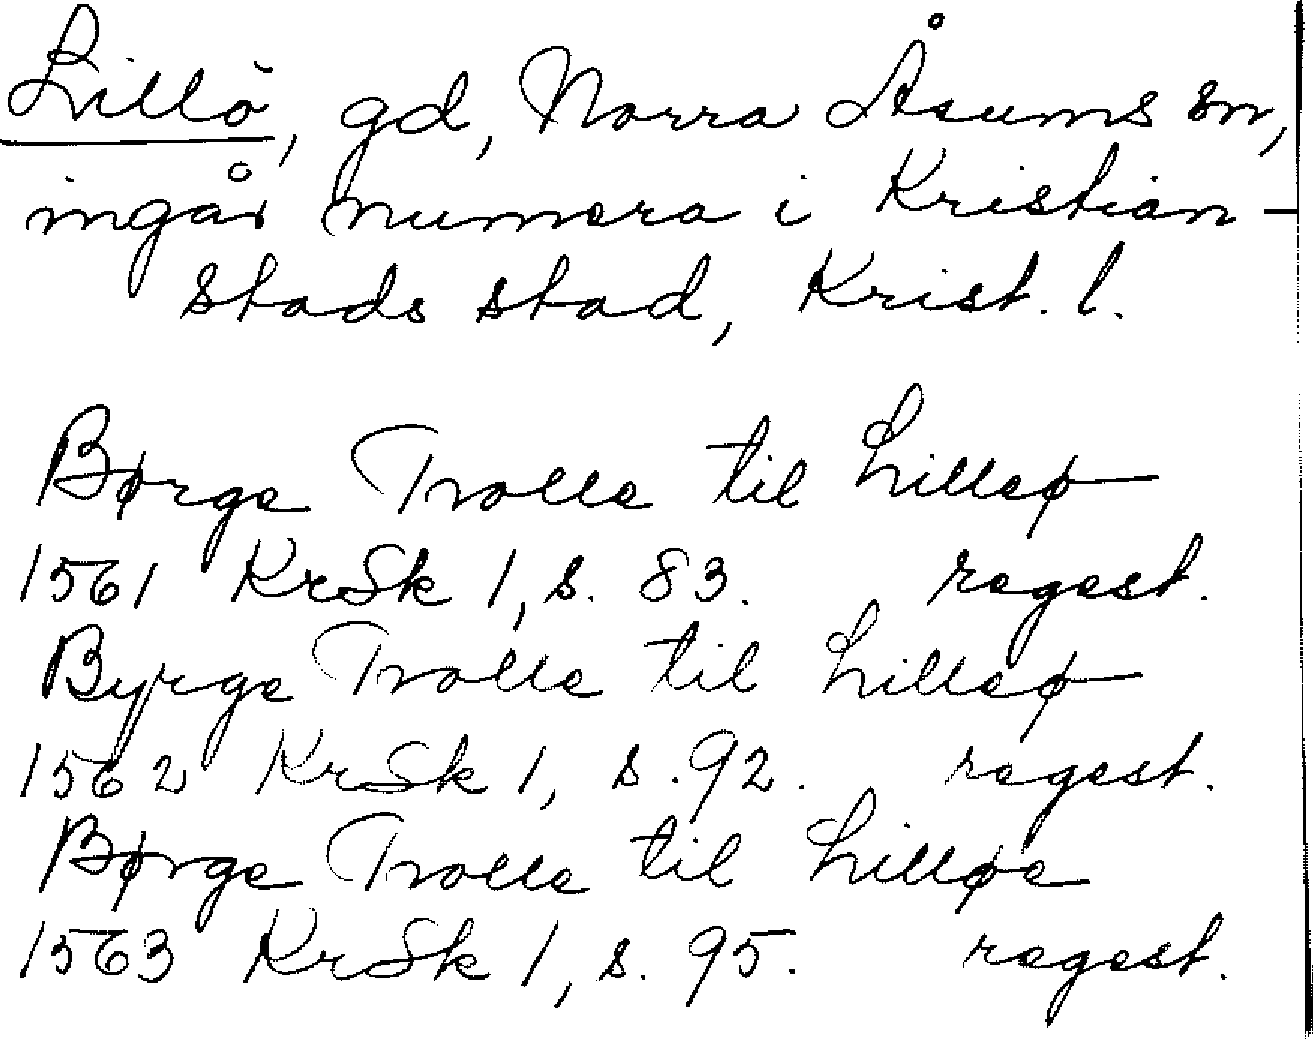 Lillö, gd, Norra Åsums sn,
ingår numera i Kristian-
stads stad, Krist. l.
Børge Trolle til Lilleø
1561 KrSk 1, s. 83. regest.
Byrge Trolle til Lilleø
1562 KrSk 1, s. 92. regest.
Børge Trolle til Lilløe
1563 KrSk 1, s. 95. regest.